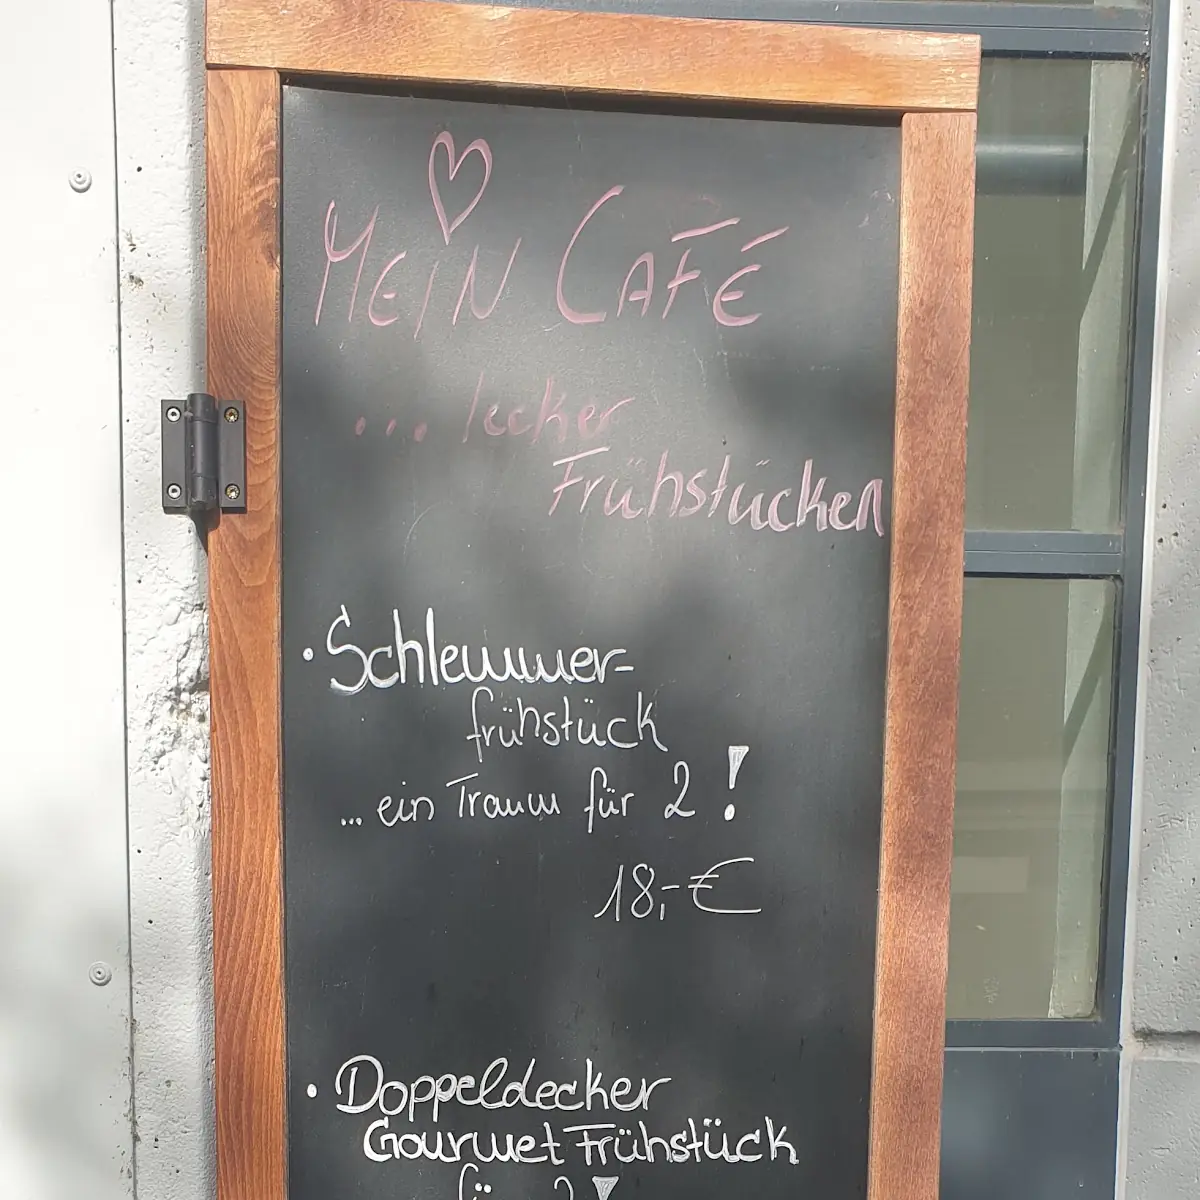 MEIN CAFÉ
... lecker
Frühstücken
• Schlemmer-
frühstück
... ein Traum für 2!
18,-€
• Doppeldecker
Gourmet Frühstück
für 2!